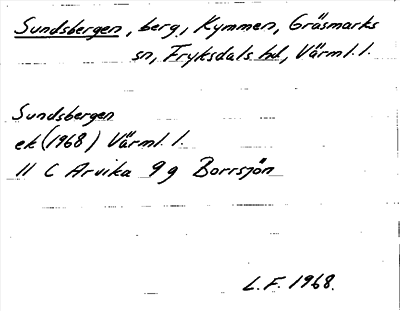 Sundsbergen, berg, Kymmen, Gräsmarks
sn, Fryksdals hd, Värml. l.
Sundsbergen
ek (1968) Värml. l.
11 C Arvika 9g Borrsjön
L.F. 1968.